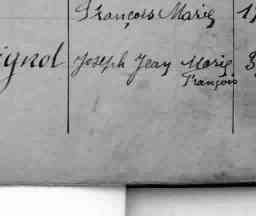 François Marie
ignol Joseph Jean Marie
François